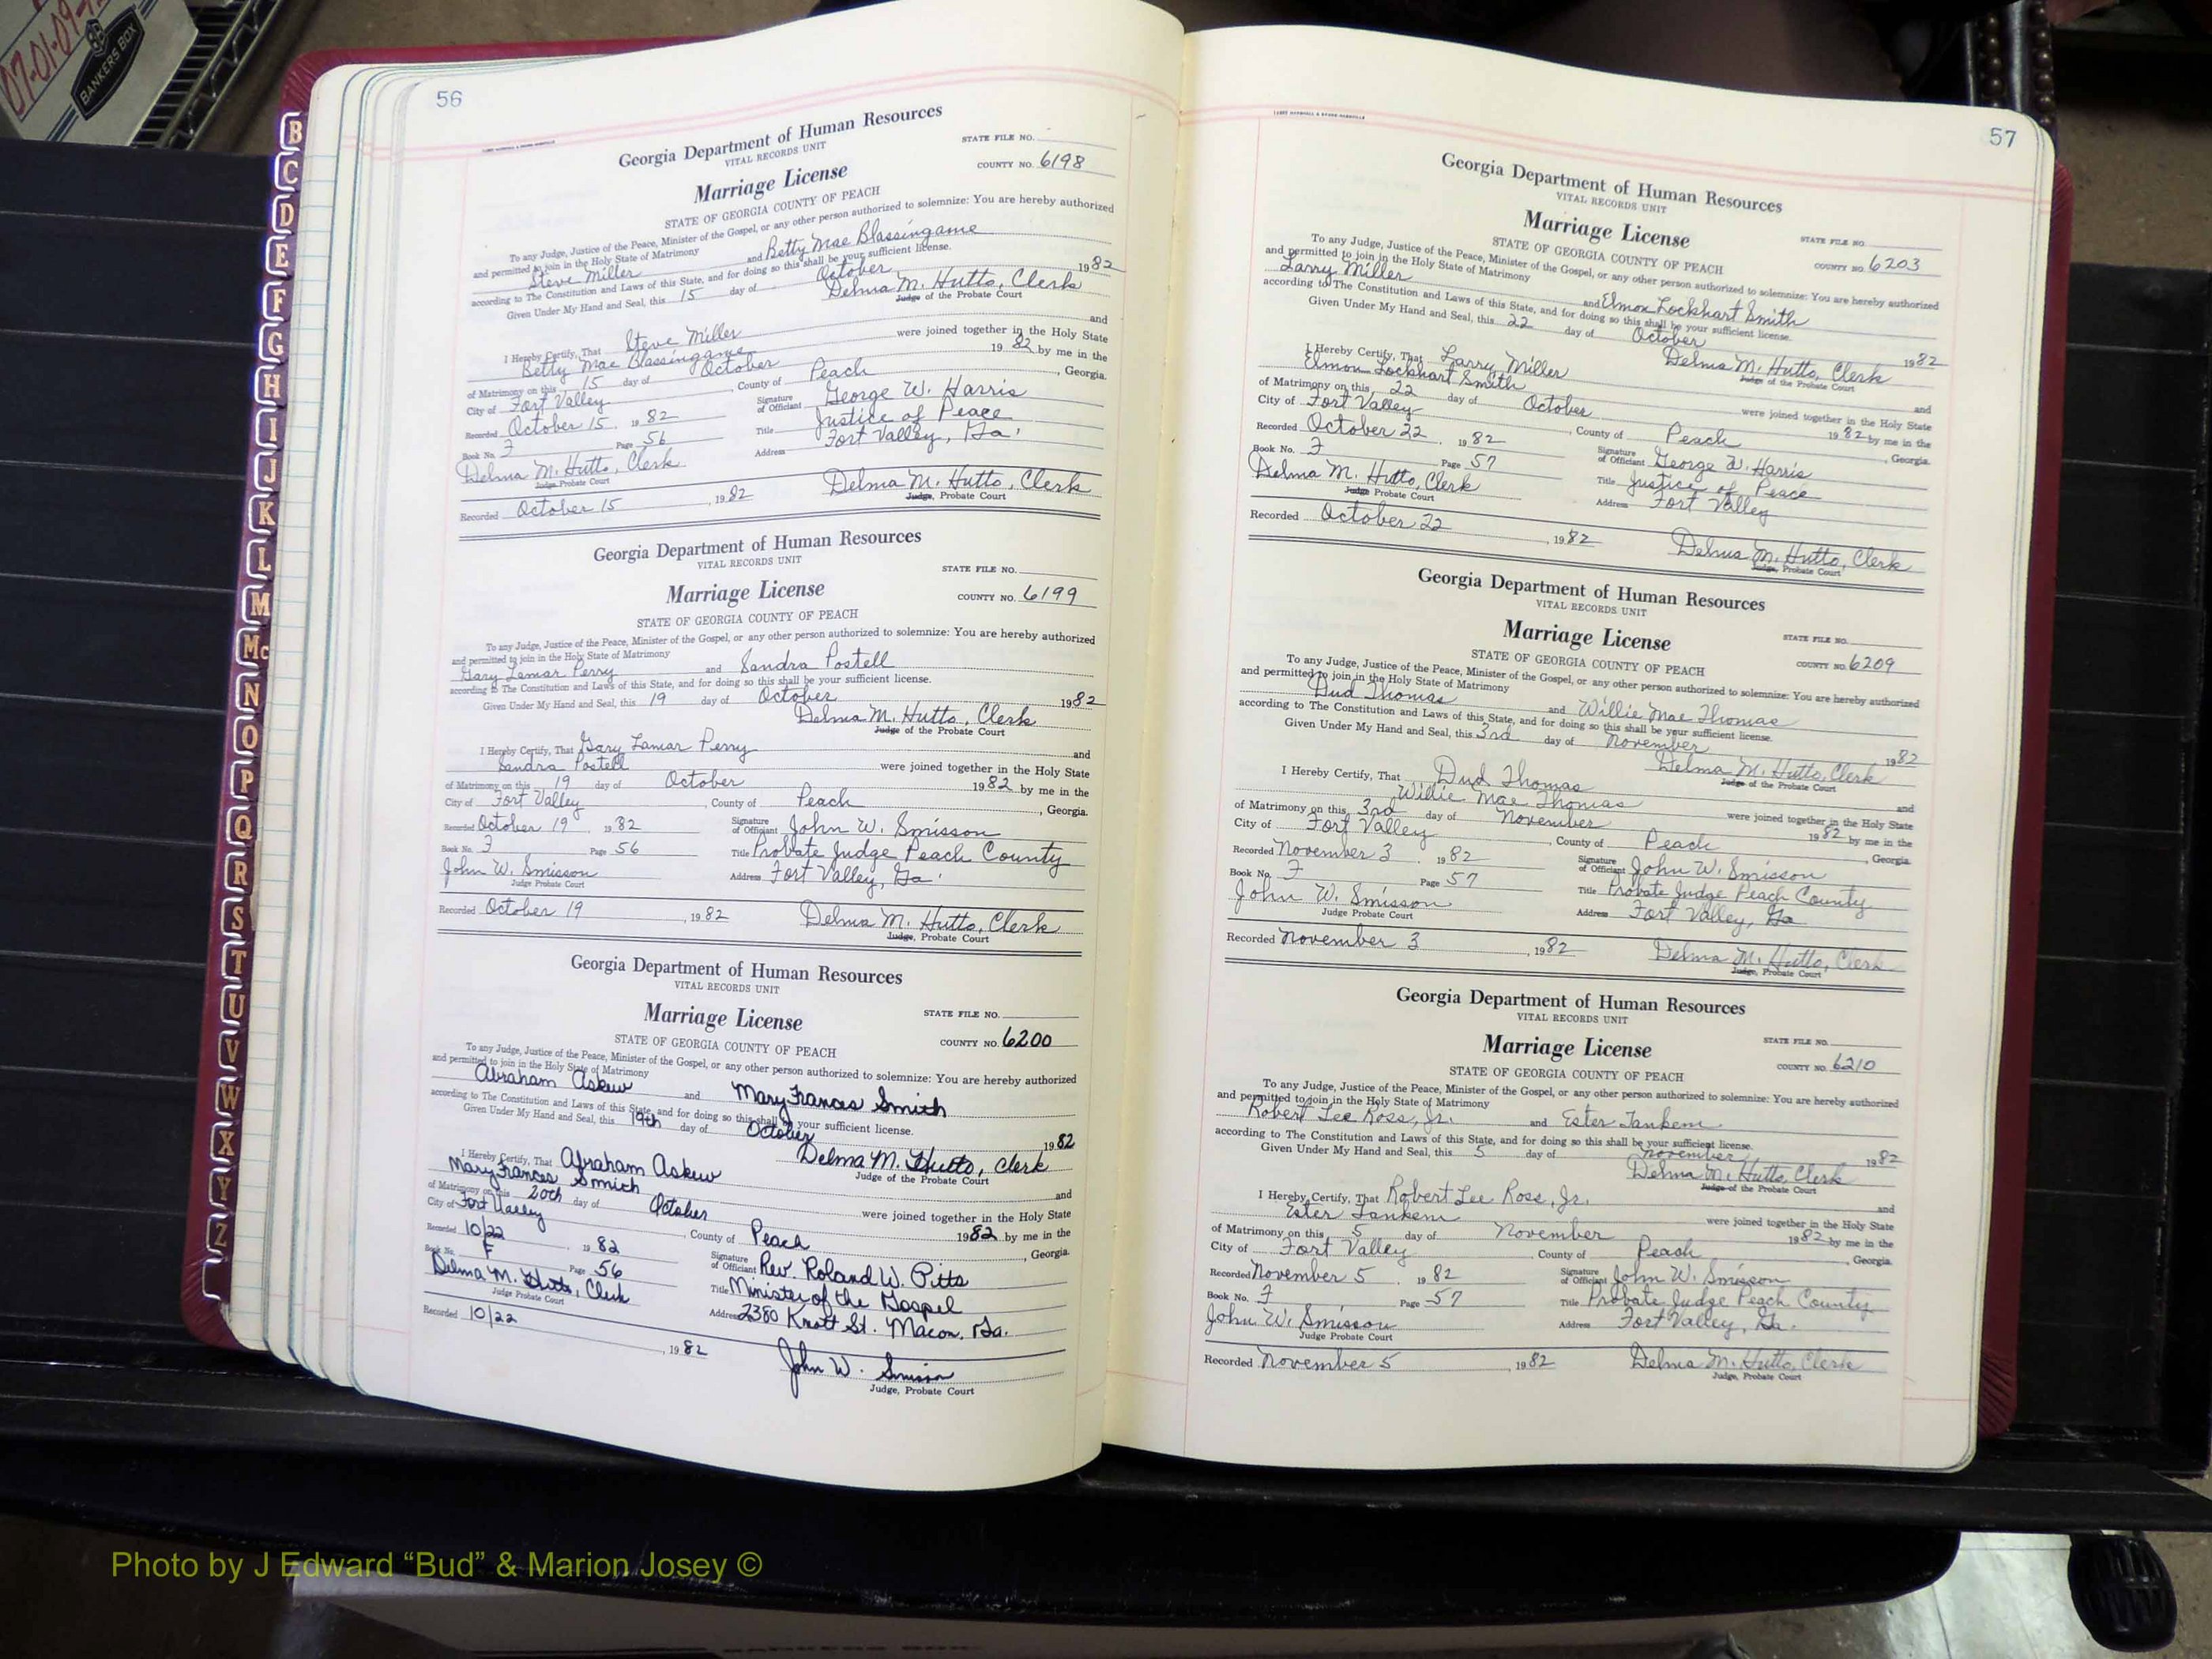 07-01-09
BANKERS BOX
B
C
D
E
F
G
H
I
J
K
L
M
Mc
N
O
P
Q
R
S
T
U
V
W
X
Y
Z
56
Georgia Department of Human Resources
VITAL RECORDS UNIT
STATE FILE NO.
Marriage License
COUNTY NO. 6198
STATE OF GEORGIA COUNTY OF PEACH
To any Judge, Justice of the Peace, Minister of the Gospel, or any other person authorized to solemnize: You are hereby authorized
and permitted to join in the Holy State of Matrimony
Steve Miller and Betty Mae Blassingame
according to The Constitution and Laws of this State, and for doing so this shall be your sufficient license.
Given Under My Hand and Seal, this 15 day of October 1982
Delma M. Hutto, Clerk
Judge of the Probate Court
I Hereby Certify, That Steve Miller and
Betty Mae Blassingame were joined together in the Holy State
of Matrimony on this 15 day of October 1982 by me in the
City of Fort Valley, County of Peach, Georgia.
Recorded October 15, 1982 Signature of Officiant George W. Harris
Book No. F Page 56 Title Justice of Peace
Delma M. Hutto, Clerk Address Fort Valley, Ga.
Judge Probate Court
Recorded October 15, 1982 Delma M. Hutto, Clerk
Judge, Probate Court
Georgia Department of Human Resources
VITAL RECORDS UNIT
STATE FILE NO.
Marriage License
COUNTY NO. 6199
STATE OF GEORGIA COUNTY OF PEACH
To any Judge, Justice of the Peace, Minister of the Gospel, or any other person authorized to solemnize: You are hereby authorized
and permitted to join in the Holy State of Matrimony
Gary Lamar Perry and Sandra Postell
according to The Constitution and Laws of this State, and for doing so this shall be your sufficient license.
Given Under My Hand and Seal, this 19 day of October 1982
Delma M. Hutto, Clerk
Judge of the Probate Court
I Hereby Certify, That Gary Lamar Perry and
Sandra Postell were joined together in the Holy State
of Matrimony on this 19 day of October 1982 by me in the
City of Fort Valley, County of Peach, Georgia.
Recorded October 19, 1982 Signature of Officiant John W. Smisson
Book No. F Page 56 Title Probate Judge Peach County
John W. Smisson Address Fort Valley, Ga.
Judge Probate Court
Recorded October 19, 1982 Delma M. Hutto, Clerk
Judge, Probate Court
Georgia Department of Human Resources
VITAL RECORDS UNIT
STATE FILE NO.
Marriage License
COUNTY NO. 6200
STATE OF GEORGIA COUNTY OF PEACH
To any Judge, Justice of the Peace, Minister of the Gospel, or any other person authorized to solemnize: You are hereby authorized
and permitted to join in the Holy State of Matrimony
Abraham Askew and Mary Frances Smith
according to The Constitution and Laws of this State, and for doing so this shall be your sufficient license.
Given Under My Hand and Seal, this 19th day of October 1982
Delma M. Hutto, Clerk
Judge of the Probate Court
I Hereby Certify, That Abraham Askew and
Mary Frances Smith were joined together in the Holy State
of Matrimony on this 20th day of October 1982 by me in the
City of Fort Valley, County of Peach, Georgia.
Recorded 10/22, 1982 Signature of Officiant Rev. Roland W. Pitts
Book No. F Page 56 Title Minister of the Gospel
Delma M. Hutto, Clerk Address 2380 Knott St. Macon, Ga.
Judge Probate Court
Recorded 10/22, 1982 John W. Smisson
Judge, Probate Court
57
Georgia Department of Human Resources
VITAL RECORDS UNIT
Marriage License
STATE FILE NO.
STATE OF GEORGIA COUNTY OF PEACH
COUNTY NO. 6203
To any Judge, Justice of the Peace, Minister of the Gospel, or any other person authorized to solemnize: You are hereby authorized
and permitted to join in the Holy State of Matrimony
Larry Miller and Elmon Lockhart Smith
according to The Constitution and Laws of this State, and for doing so this shall be your sufficient license.
Given Under My Hand and Seal, this 22 day of October 1982
Delma M. Hutto, Clerk
Judge of the Probate Court
I Hereby Certify, That Larry Miller and
Elmon Lockhart Smith were joined together in the Holy State
of Matrimony on this 22 day of October 1982 by me in the
City of Fort Valley, County of Peach, Georgia.
Recorded October 22, 1982 Signature of Officiant George W. Harris
Book No. F Page 57 Title Justice of Peace
Delma M. Hutto, Clerk Address Fort Valley
Judge Probate Court
Recorded October 22, 1982 Delma M. Hutto, Clerk
Judge, Probate Court
Georgia Department of Human Resources
VITAL RECORDS UNIT
Marriage License
STATE FILE NO.
STATE OF GEORGIA COUNTY OF PEACH
COUNTY NO. 6209
To any Judge, Justice of the Peace, Minister of the Gospel, or any other person authorized to solemnize: You are hereby authorized
and permitted to join in the Holy State of Matrimony
Dud Thomas and Willie Mae Thomas
according to The Constitution and Laws of this State, and for doing so this shall be your sufficient license.
Given Under My Hand and Seal, this 3rd day of November 1982
Delma M. Hutto, Clerk
Judge of the Probate Court
I Hereby Certify, That Dud Thomas and
Willie Mae Thomas were joined together in the Holy State
of Matrimony on this 3rd day of November 1982 by me in the
City of Fort Valley, County of Peach, Georgia.
Recorded November 3, 1982 Signature of Officiant John W. Smisson
Book No. F Page 57 Title Probate Judge Peach County
John W. Smisson Address Fort Valley, Ga
Judge Probate Court
Recorded November 3, 1982 Delma M. Hutto, Clerk
Judge, Probate Court
Georgia Department of Human Resources
VITAL RECORDS UNIT
Marriage License
STATE FILE NO.
STATE OF GEORGIA COUNTY OF PEACH
COUNTY NO. 6210
To any Judge, Justice of the Peace, Minister of the Gospel, or any other person authorized to solemnize: You are hereby authorized
and permitted to join in the Holy State of Matrimony
Robert Lee Ross, Jr. and Ester Tankem
according to The Constitution and Laws of this State, and for doing so this shall be your sufficient license.
Given Under My Hand and Seal, this 5 day of November 1982
Delma M. Hutto, Clerk
Judge of the Probate Court
I Hereby Certify, That Robert Lee Ross, Jr. and
Ester Tankem were joined together in the Holy State
of Matrimony on this 5 day of November 1982 by me in the
City of Fort Valley County of Peach, Georgia.
Recorded November 5, 1982 Signature of Officiant John W. Smisson
Book No. F Page 57 Title Probate Judge Peach County
John W. Smisson Address Fort Valley, Ga.
Judge Probate Court
Recorded November 5, 1982 Delma M. Hutto, Clerk
Judge, Probate Court
Photo by J Edward “Bud” & Marion Josey ©